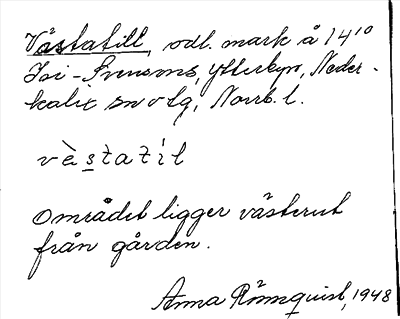 Västatill, odl. mark å 14¹⁰
Isi-Svensons, Ytterbyn, Neder-
kalix sn o lg, Norrb. l.
vὲstatíl
Området ligger västerut
från gården.
Anna Rönnquist, 1948